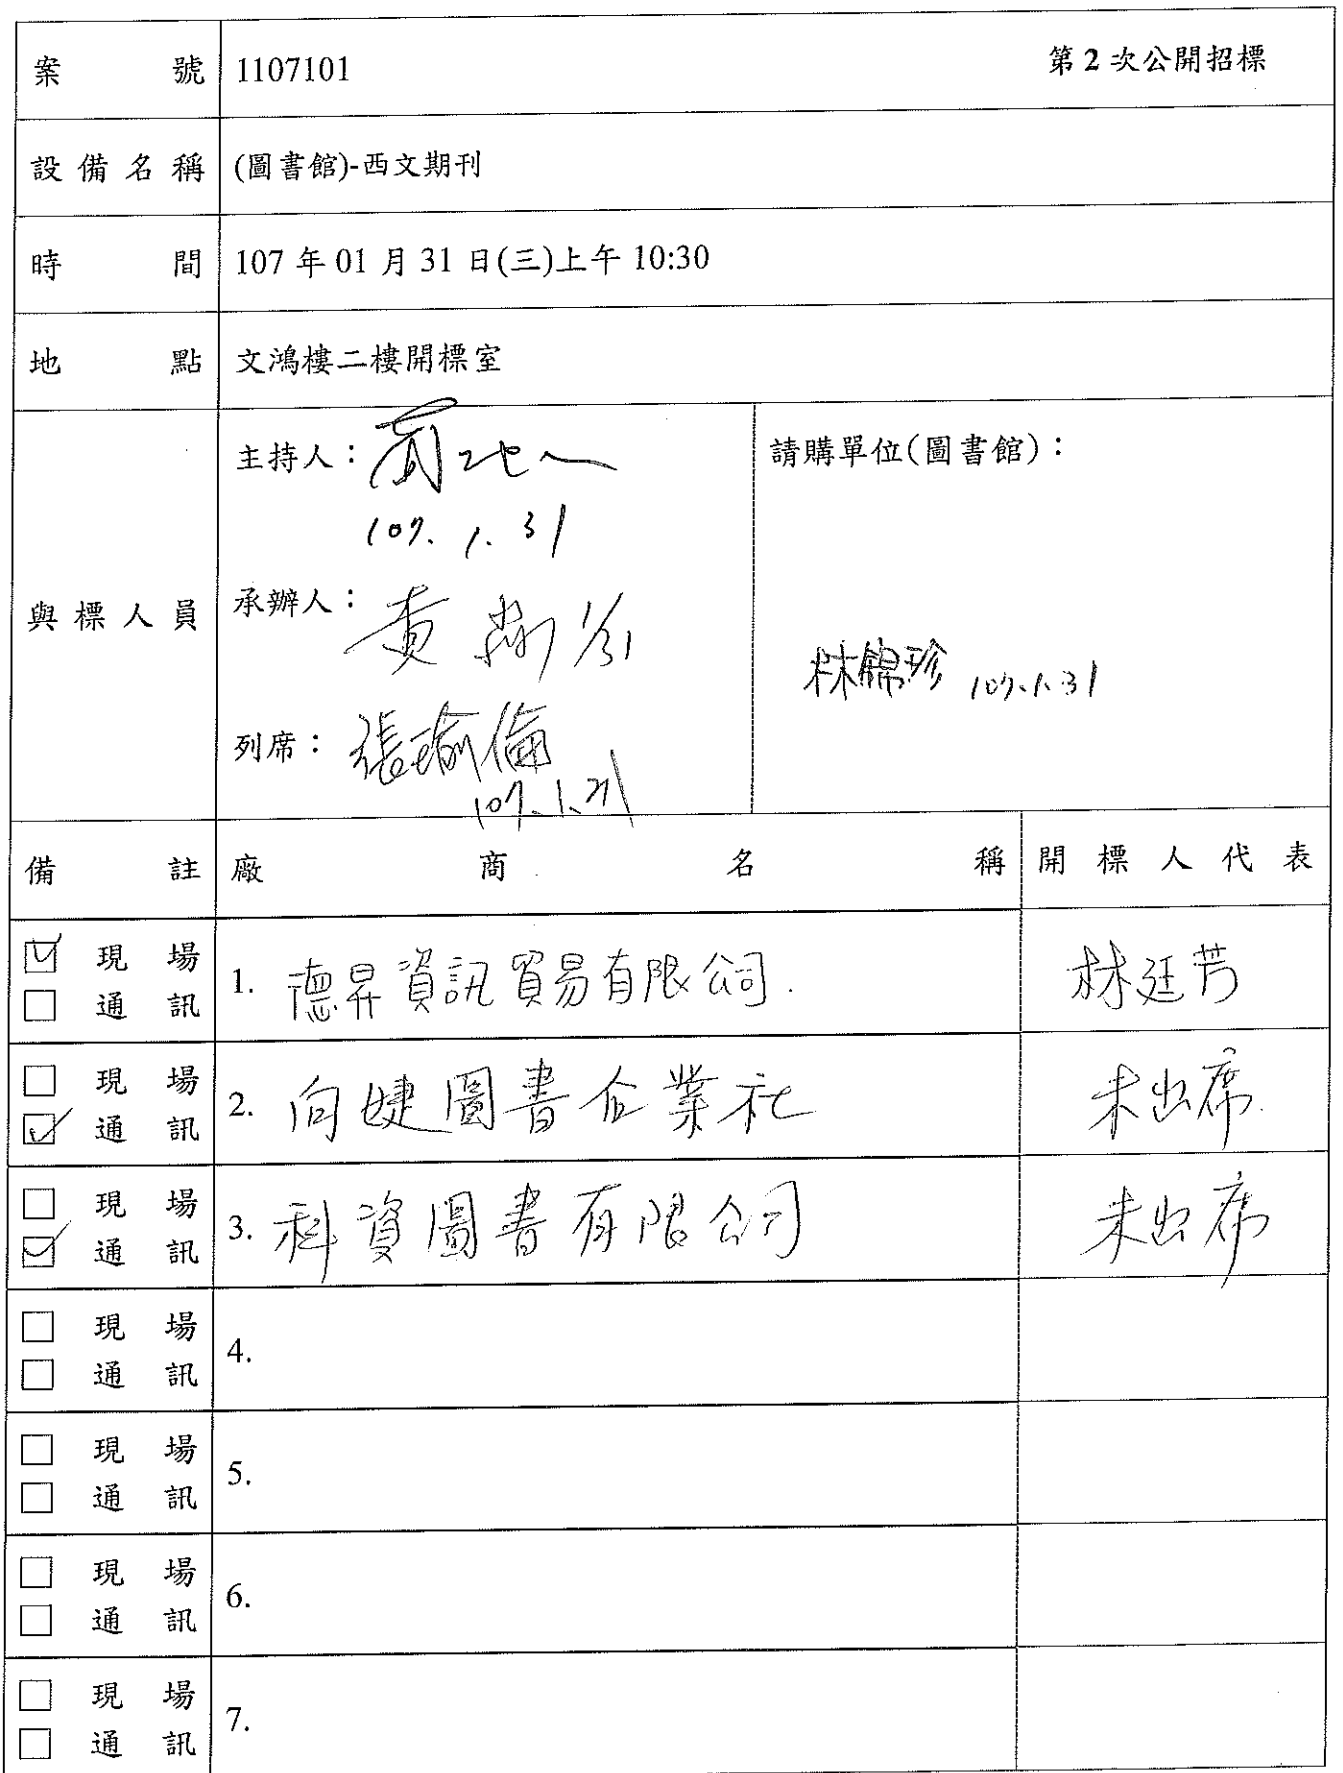 案號 1107101 第2次公開招標
設備名稱 (圖書館)-西文期刊
時間 107年01月31日(三)上午10:30
地點 文鴻樓二樓開標室
與標人員
主持人：
107.1.31
承辦人：黃 1/31
列席：張瑜倫
107.1.31
請購單位(圖書館)：
林錦珍 107.1.31
備註 廠商名稱 開標人代表
☑ 現場
□ 通訊
1. 德昇資訊貿易有限公司. 林廷芳
□ 現場
☑ 通訊
2. 向婕圖書企業社 未出席.
□ 現場
☑ 通訊
3. 科資圖書有限公司 未出席
□ 現場
□ 通訊
4.
□ 現場
□ 通訊
5.
□ 現場
□ 通訊
6.
□ 現場
□ 通訊
7.